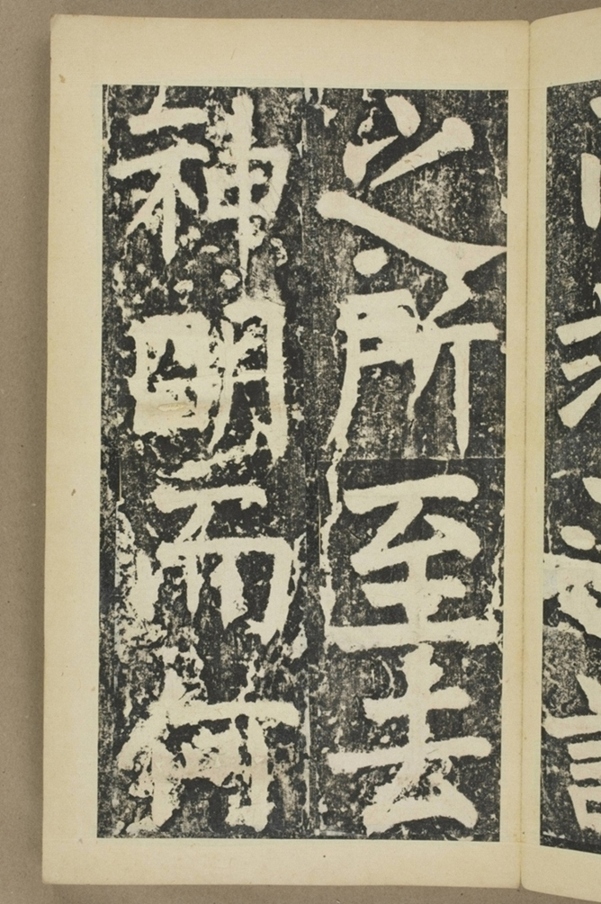 之所至去
神明而何